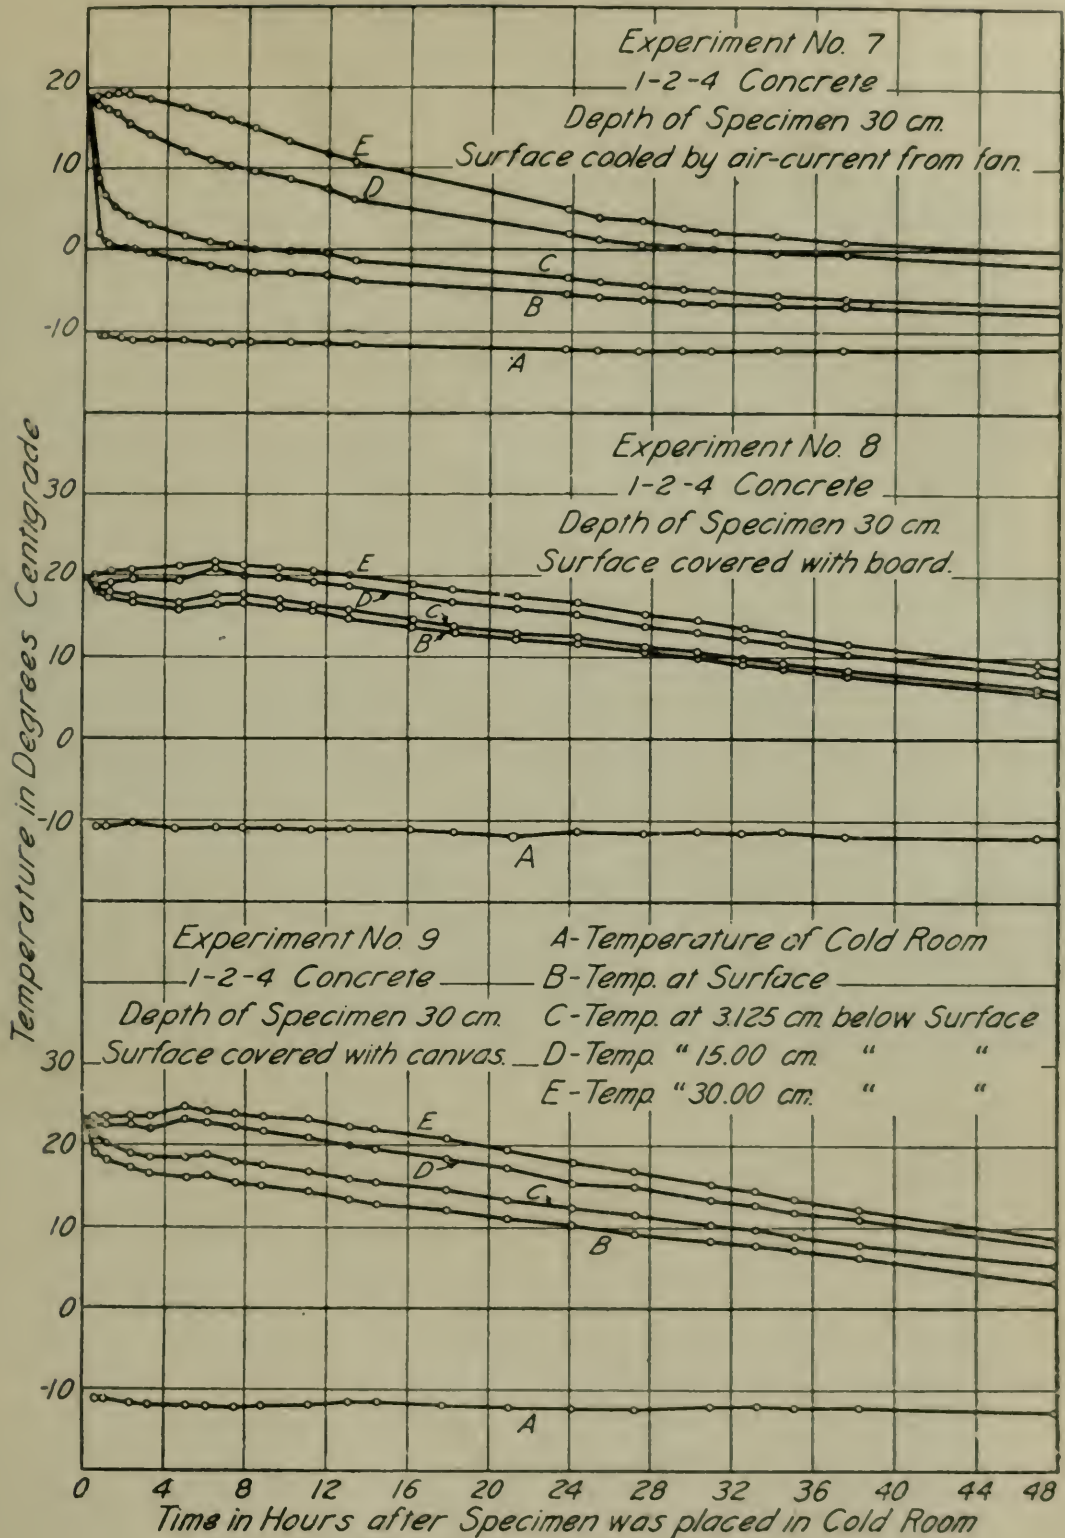 Experiment No. 7
1-2-4 Concrete
Depth of Specimen 30 cm.
Surface cooled by air-current from fan.
20
10
0
-10
E
D
C
B
A
Temperature in Degrees Centigrade
Experiment No. 8
1-2-4 Concrete
Depth of Specimen 30 cm.
Surface covered with board.
30
20
10
0
-10
E
D
C
B
A
Experiment No. 9
1-2-4 Concrete
Depth of Specimen 30 cm.
Surface covered with canvas.
A-Temperature of Cold Room
B-Temp. at Surface
C-Temp. at 3.125 cm. below Surface
D-Temp. " 15.00 cm. " "
E-Temp. " 30.00 cm. " "
30
20
10
0
-10
E
D
C
B
A
0 4 8 12 16 20 24 28 32 36 40 44 48
Time in Hours after Specimen was placed in Cold Room